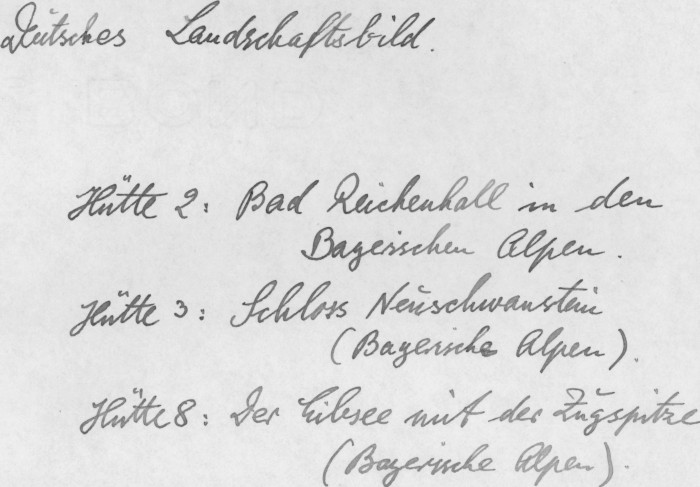 Deutsches Landschaftsbild.
Hütte 2: Bad Reichenhall in den
Bayerischen Alpen.
Hütte 3: Schloss Neuschwanstein
(Bayerische Alpen).
Hütte 8: Der Eibsee mit der Zugspitze
(Bayerische Alpen).